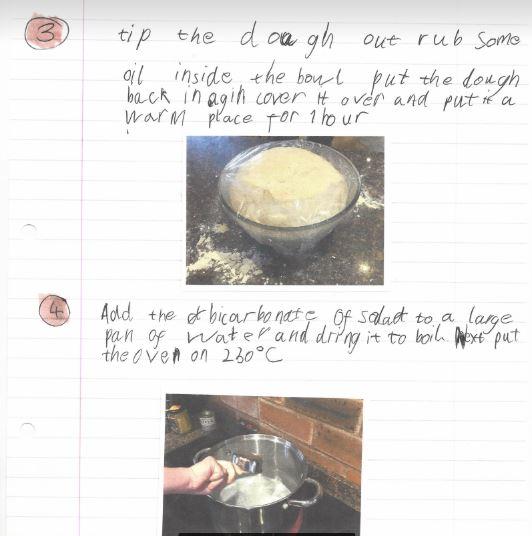 3 tip the dough out rub some
oil inside the bowl put the dough
back in agih cover it over and put it a
warm place for 1 hour
4 Add the bicarbonate of sodat to a large
pan of water and dring it to boil Next put
the oven on 230°C